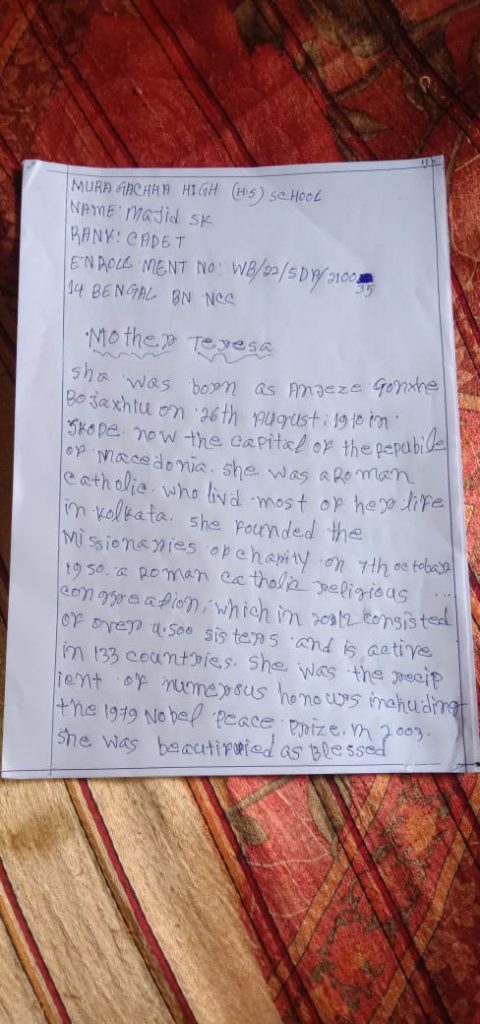 MURAGACHHA HIGH (H.S) SCHOOL
NAME: Majid SK
RANK: CADET
ENROLL MENT NO: WB/22/SDA/2100
35
14 BENGAL BN NCC
Mother Teresa
She was born as Anjeze Gonxhe
Bojaxhiu on 26th August, 1910 in
Skope. now the capital of the Repubile
of Macedonia. She was a Roman
Catholic. who livid most of her life
in Kolkata. She founded the
Missionaries of charity on 7th october
1950. a Roman catholic religious
congreation, which in 2012 consisted
of over 4.500 sisters and is active
in 133 countries. She was the recip
ient of numerous honours including
the 1979 Nobel Peace Prize. in 2003.
She was beautified as Blessed